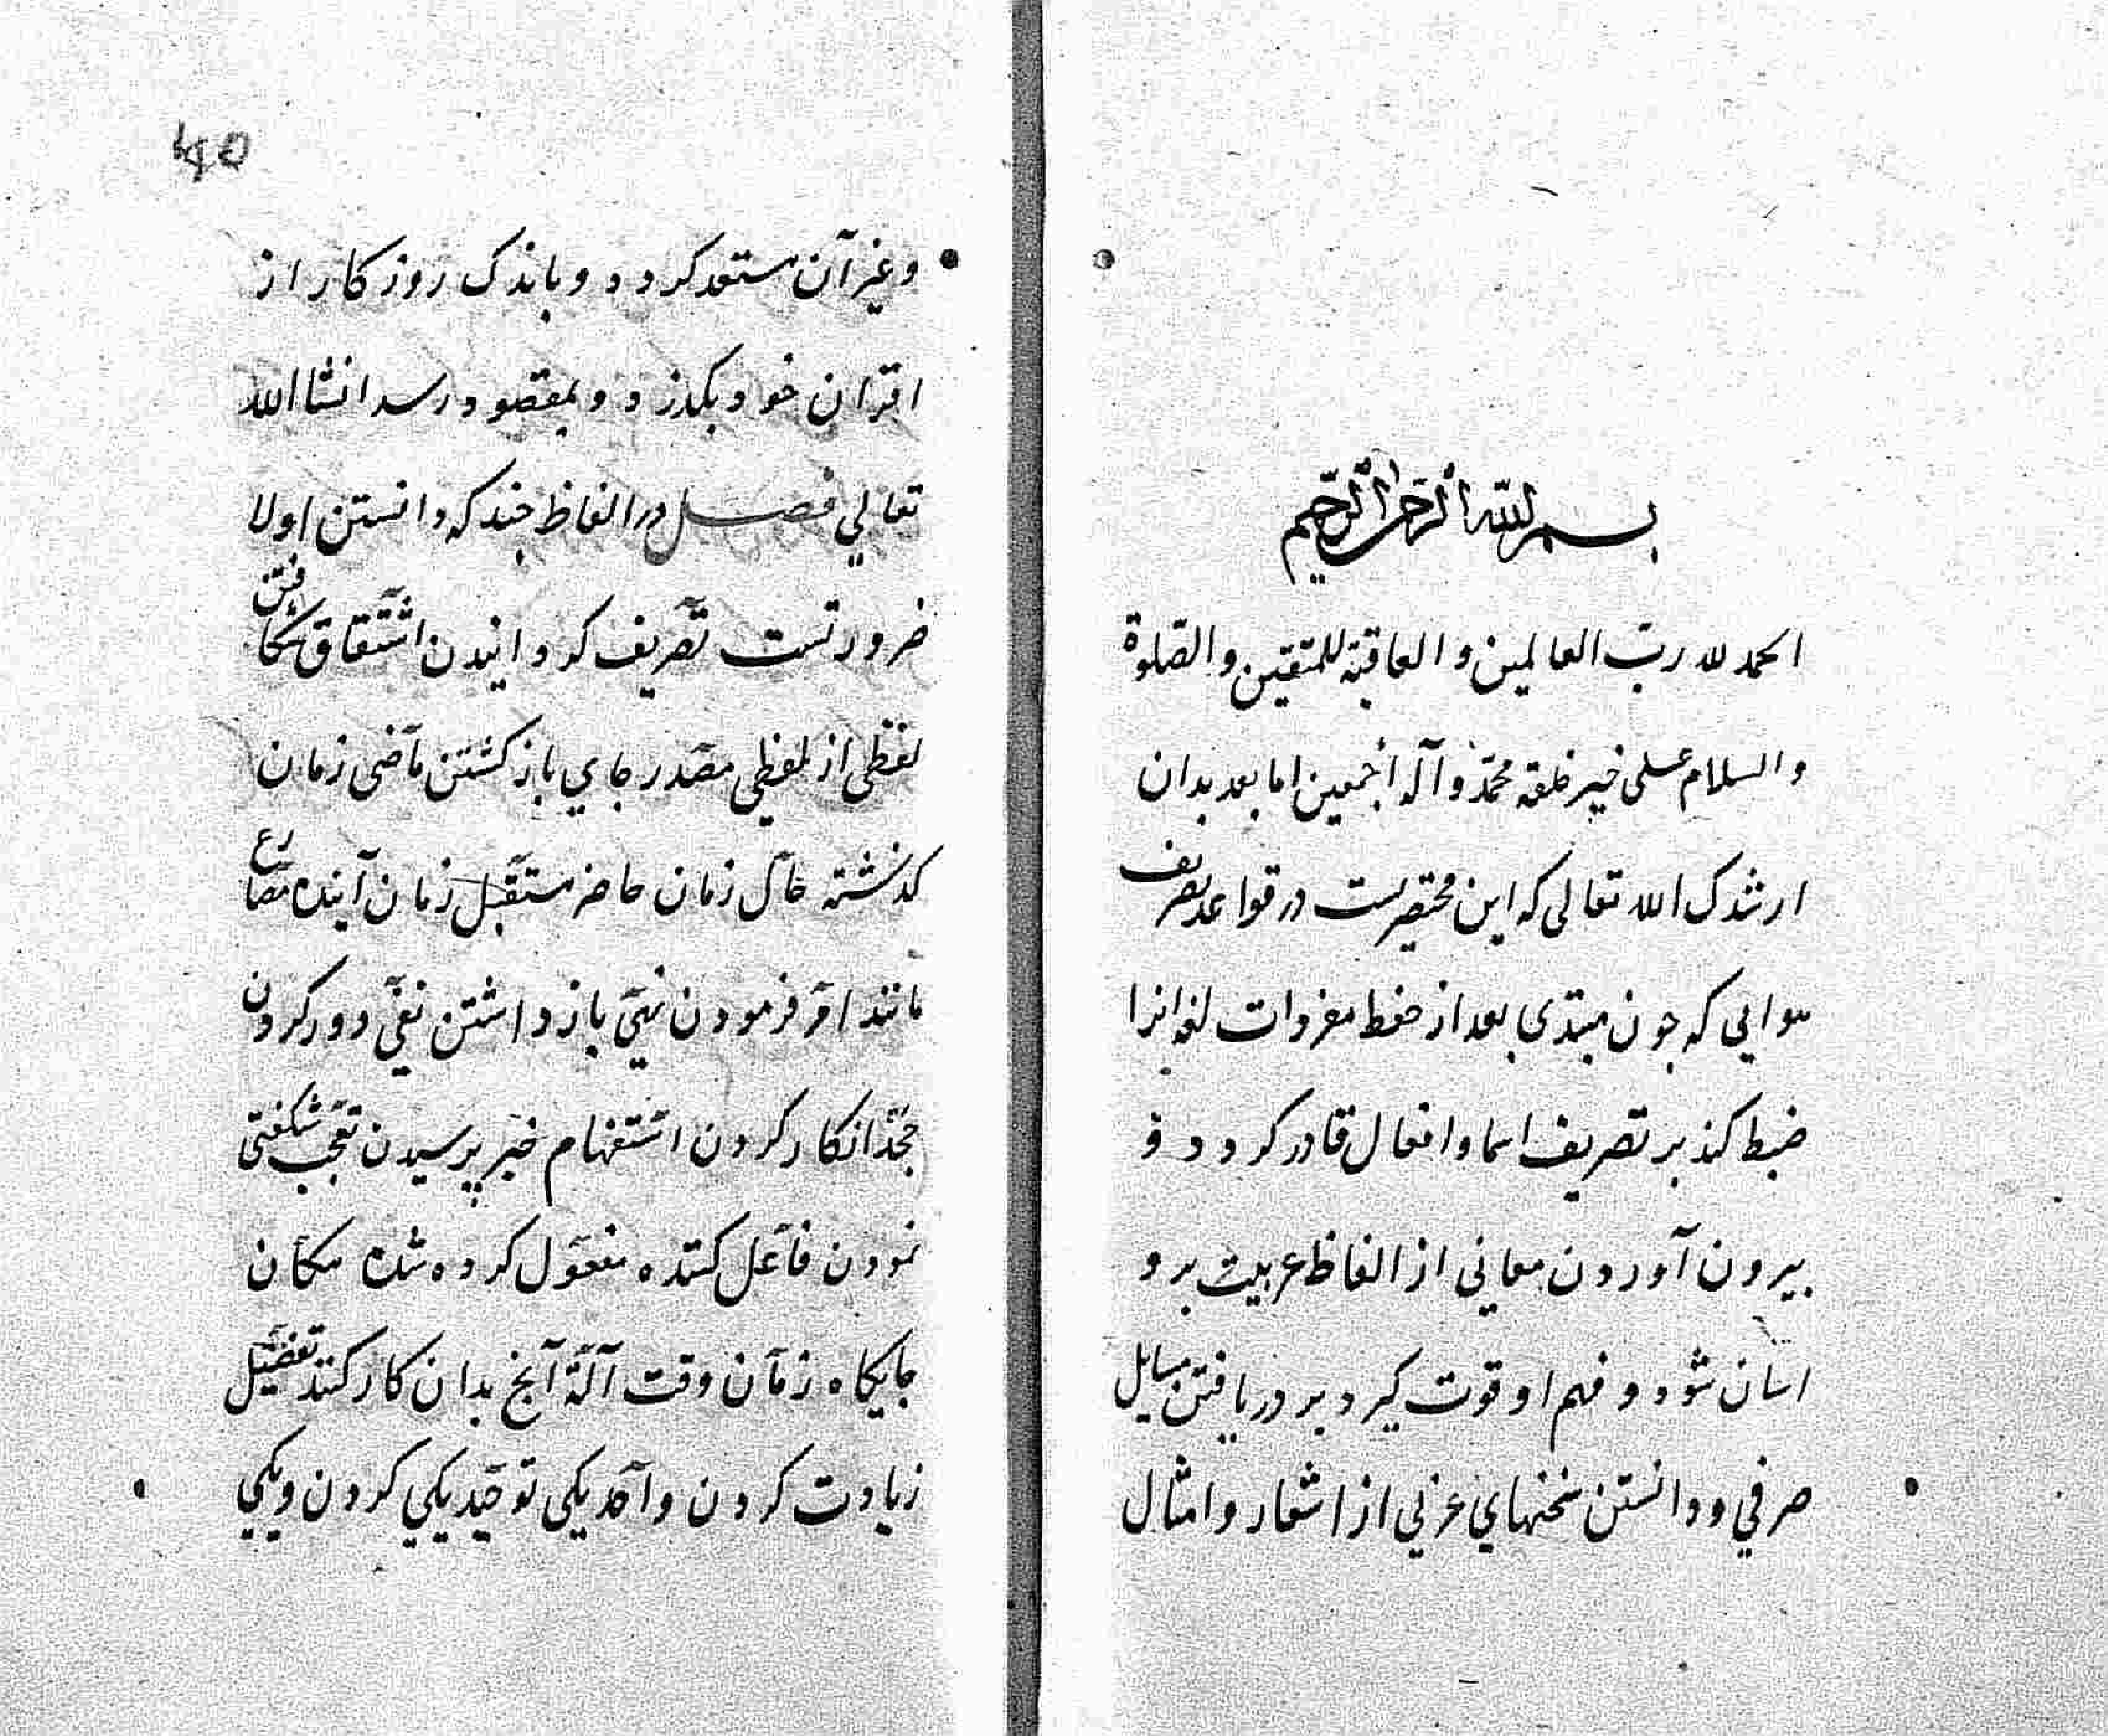 بسم الله الرحمن الرحيم
الحمد لله ربّ العالمين و العاقبة للمتقين و الصّلوة
و السلام على خير خلقه محمّد و آله أجمعين اما بعد بدان
ارشدك الله تعالى كه اين مختصريست در قواعد تصريف
كه جون مبتدى بعد از حفظ مفردات لغة انرا
ضبط كند بر تصريف اسما و افعال قادر كردد و
بيرون آوردن معاني از الفاظ عربيت برو
اسان شود و فهم او قوت كيرد بر دريافتن مسايل
صرفي و دانستن سخنهاي عربي از اشعار و امثال
۴۵
و غير آن مستعد كردد و باندك روزكار از
اقران خود بكذرد و بمقصود رسد انشا الله
تعالي فصل در الفاظ جند كه دانستن اولا
ضرورتست تصريف كردانيدن اشتقاق شكافتن
لفظى از لفظي مصدر جاي باز كشتن ماضى زمان
كذشته حال زمان حاضر مستقبل زمان آينده مضارع
مانند امر فرمودن نهي باز داشتن نفي دور كردن
جحد انكار كردن استفهام خبر پرسيدن تعجب شكفتى
نمودن فاعل كننده مفعول كرده شده مكان
جايكاه زمان وقت آلة آنج بدان كار كنند تفضيل
زيادت كردن واحد يكى توحيد يكي كردن و يكي